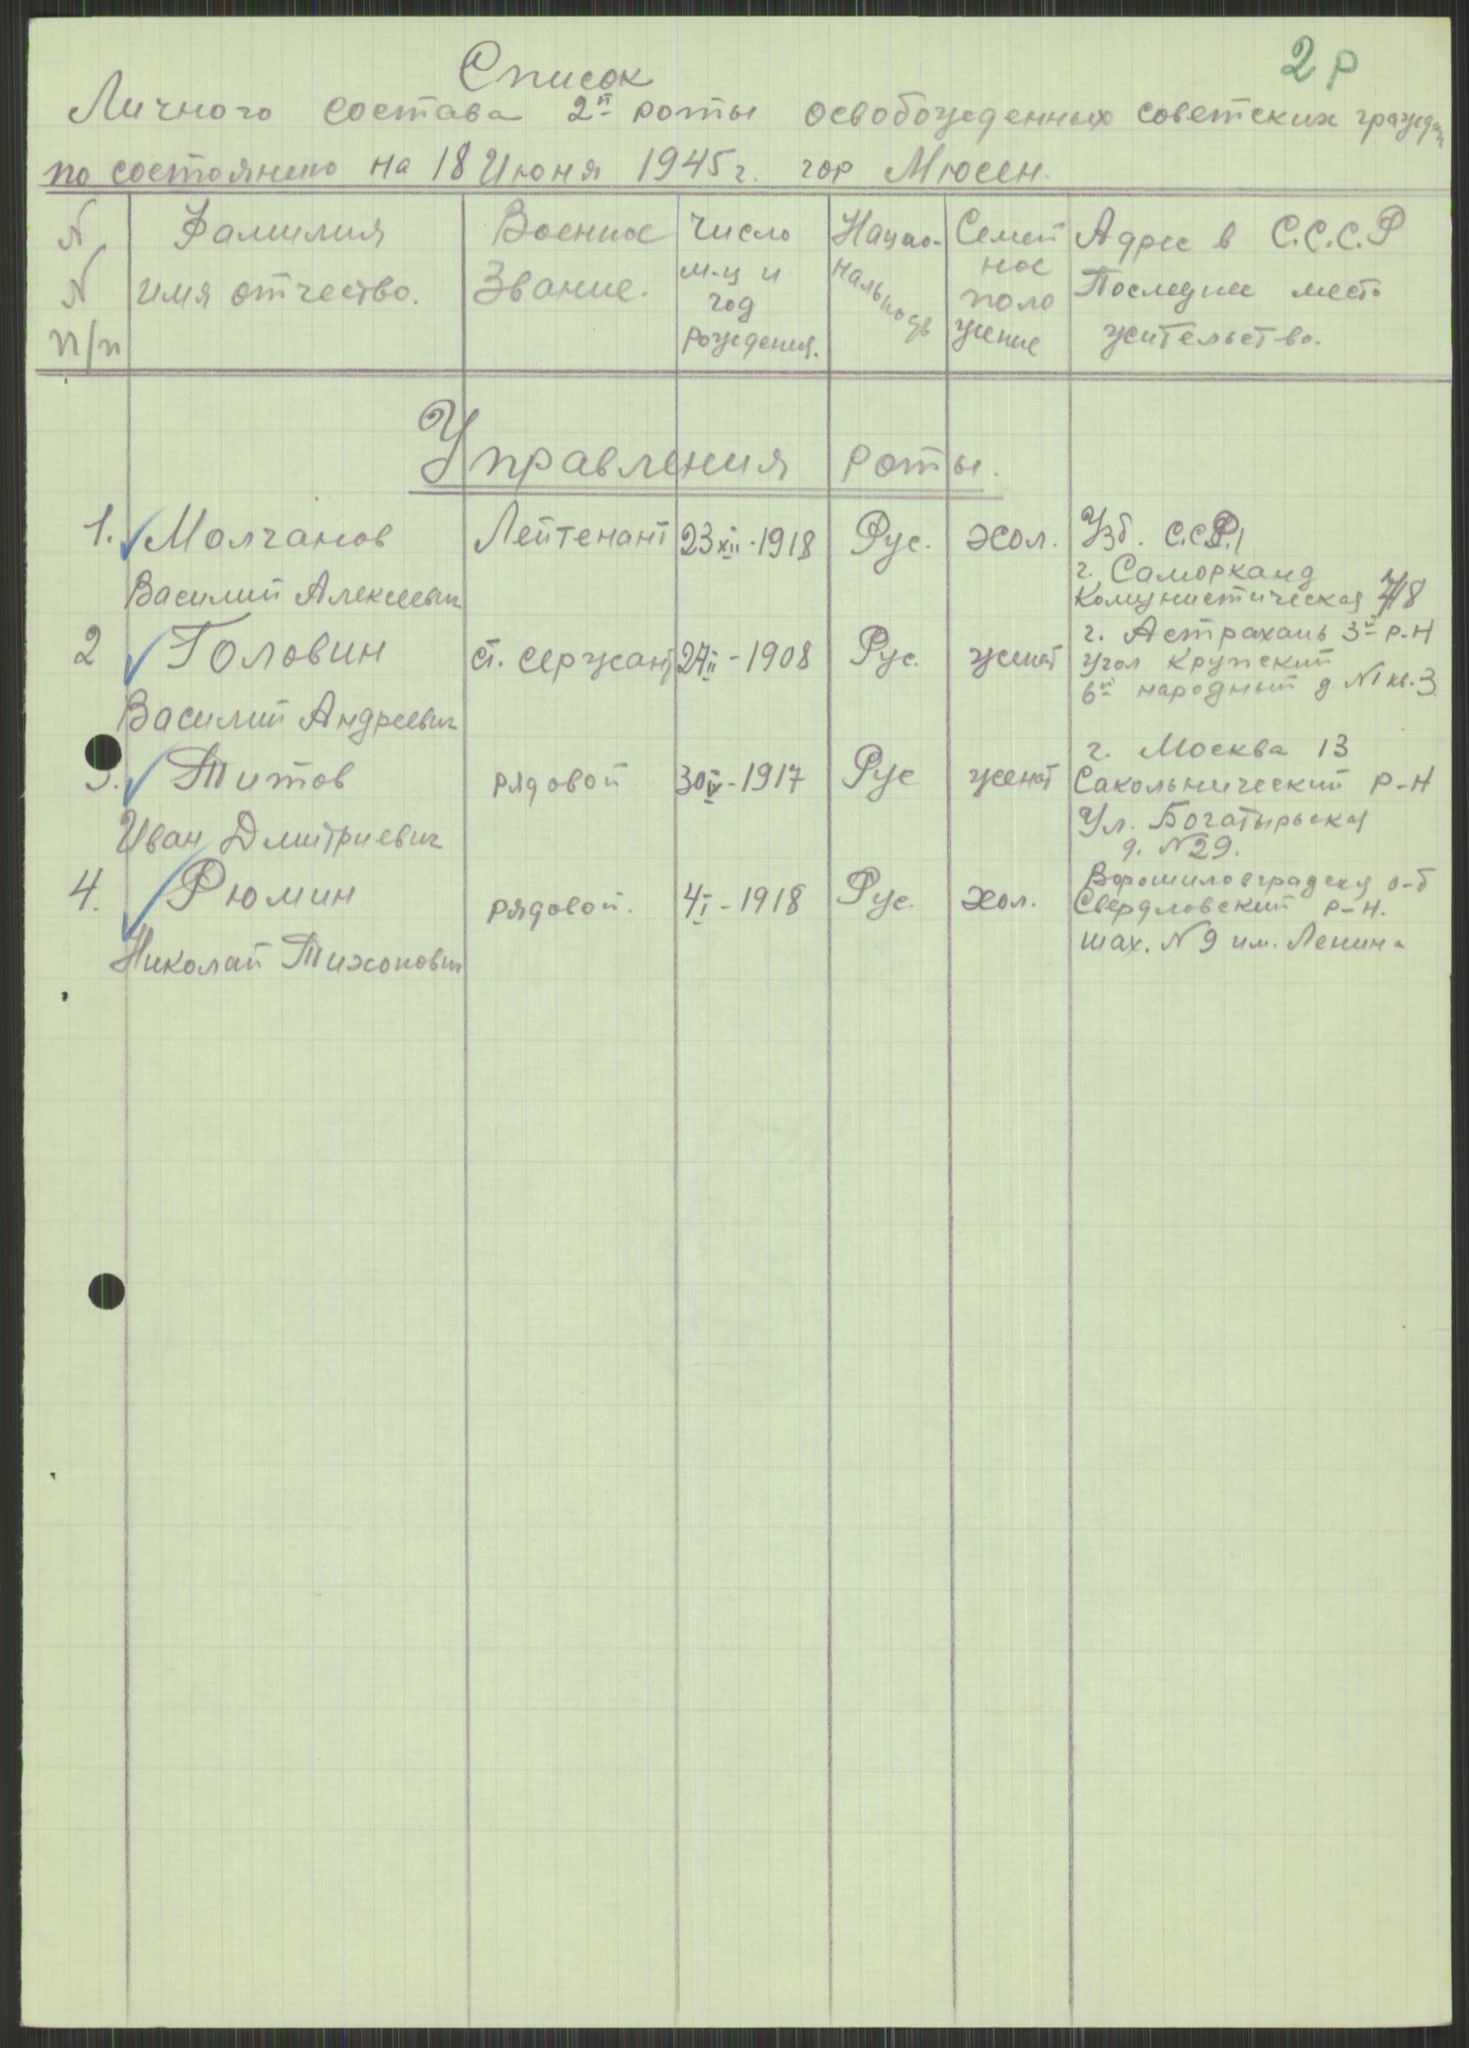 2 р
Список
Личного состава 2й роты освобожденных советских граждан
по состоянию на 18 Июня 1945 г. гор Мюсен.
N N п/п | Фамилия имя отчество. | Военное Звание. | Число м-ц и год рождения. | Нацио- нальность | Семей ное поло жение | Адрес в С.С.С.Р Последнее место жительство.
Управления роты.
1. Молчанов Лейтенант 23 XII - 1918 Рус. хол. Узб. С.С.Р.
г. Саморканд
Василий Алексеевич Комунистическая 78
г. Астрахань 3й р-н
2 Головин ст. сержант 27 II - 1908 Рус. женат угол Крупский
6й народный д. N1 кв. 3
Василий Андреевич
г. Москва 13
3. Титов рядовой 30 IV - 1917 Рус женат Сакольнический р-н
Иван Дмитриевич Ул. Богатырьская
д. N 29.
Ворошиловградская о-б
4. Рюмин рядовой. 4 I - 1918 Рус. хол. Свердловский р-н.
Николай Тихонович шах. N 9 им. Ленина